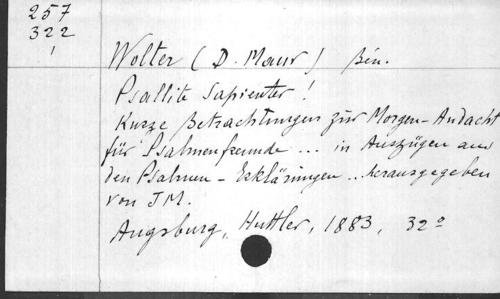 257
322
1
Wolter (D. Maur) Bén.
Psallite Sapienter!
Kurze Betrachtungen zur Morgen-Andacht
für Psalmenfreunde ... in Auszügen aus
den Psalmen-Erklärungen .. herausgegeben
von J M.
Augsburg, Huttler, 1883, 32º